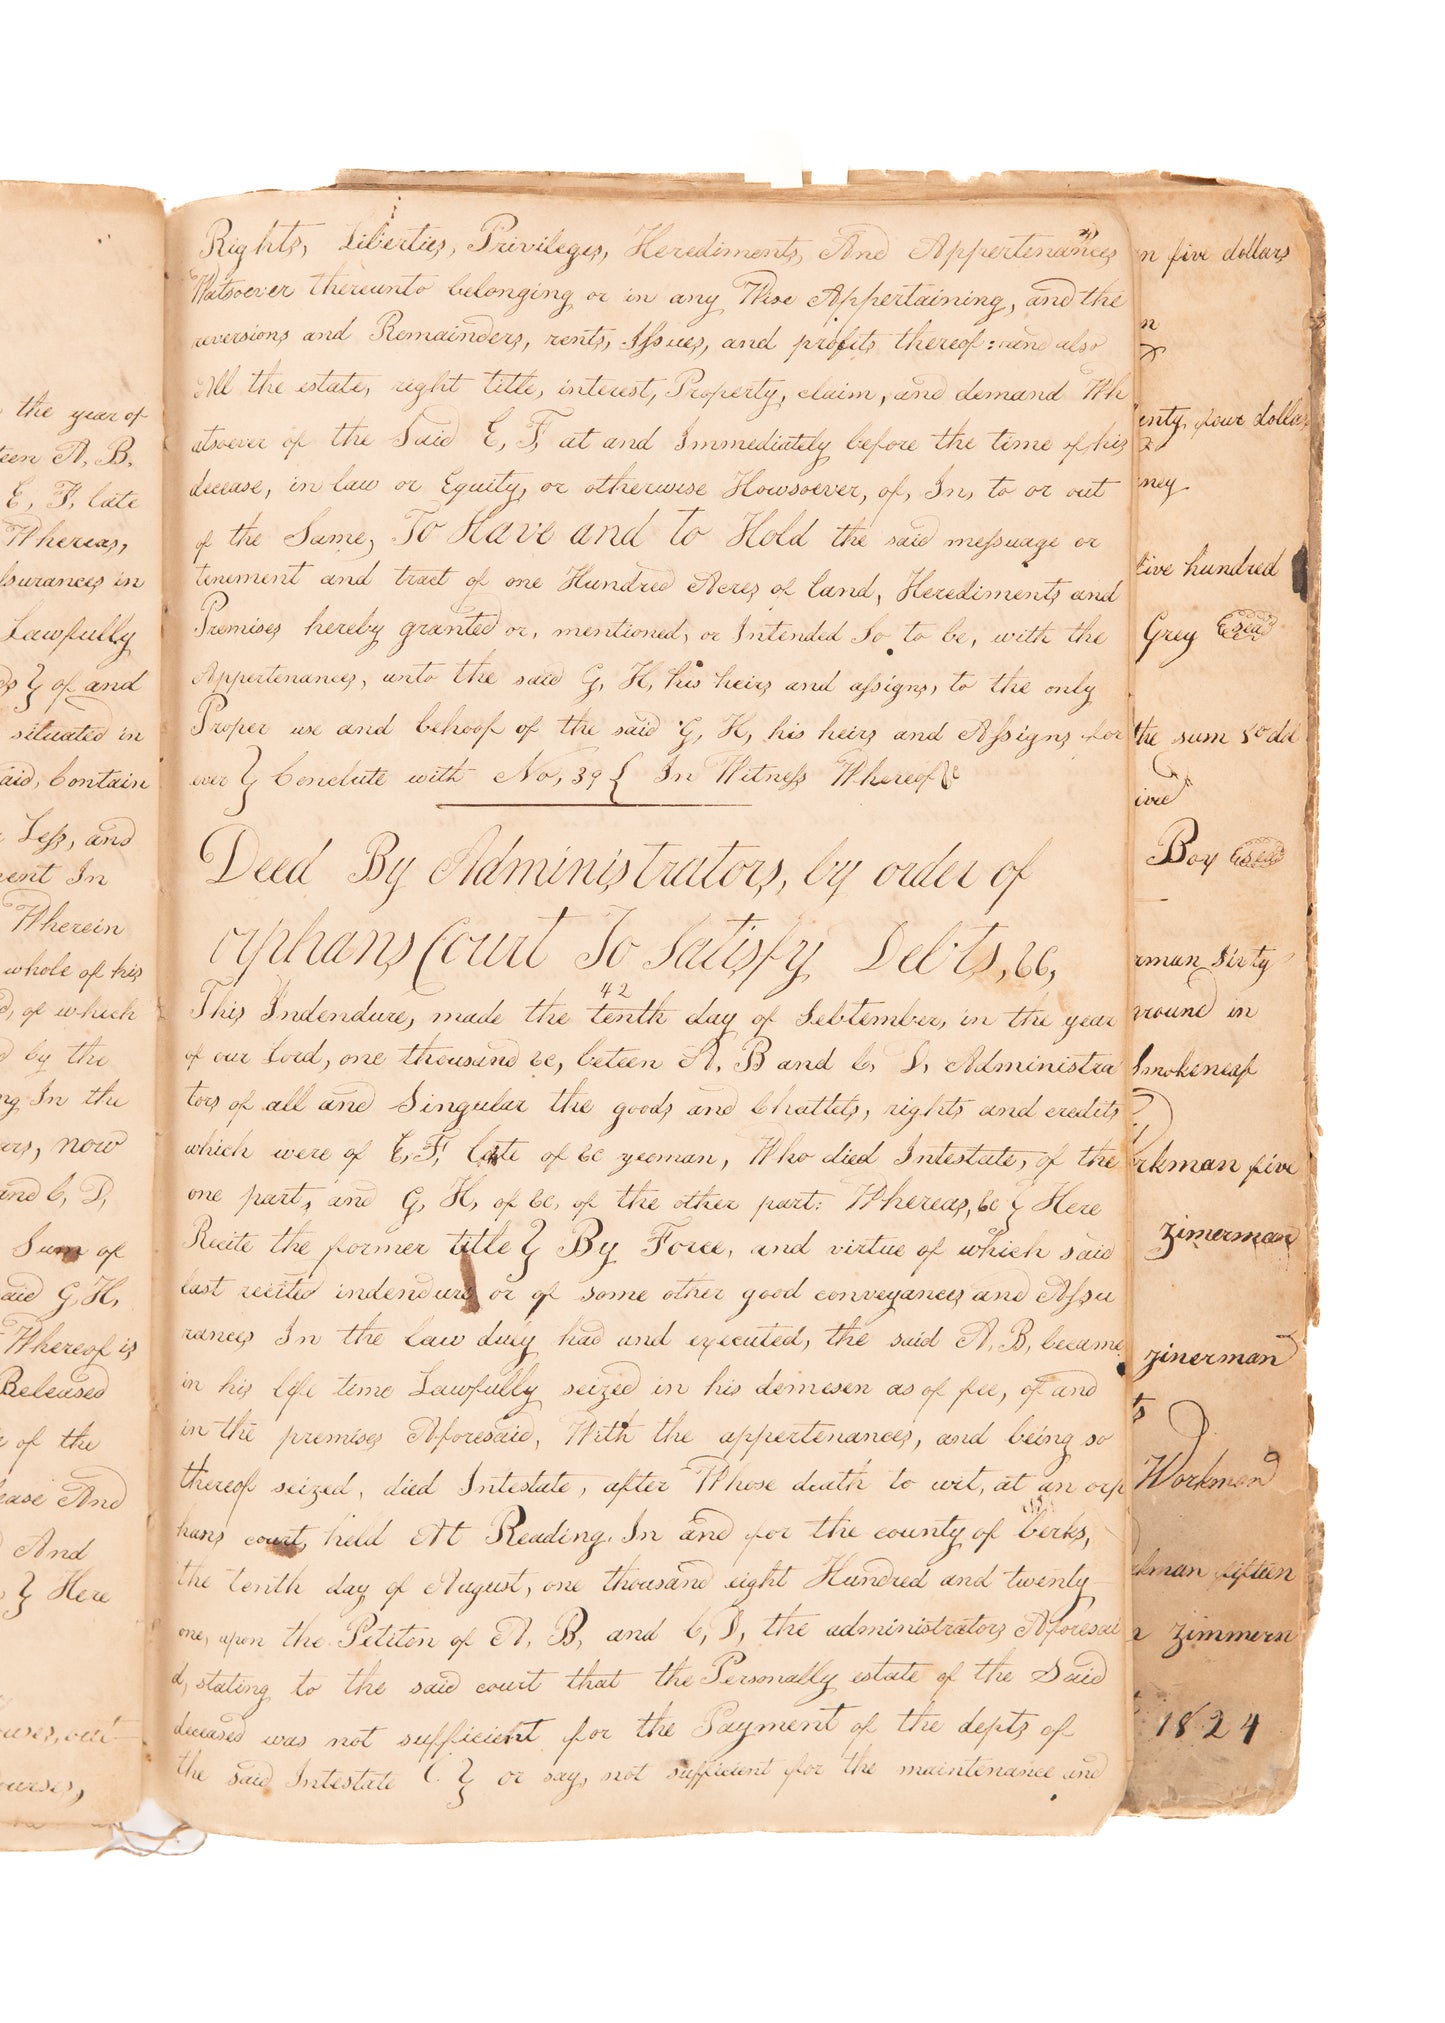 the year of
teen A. B.
E, F, late
Whereas,
ssurances in
Lawfully
of and
situated in
aid, Contain
Less, and
ent In
Wherein
whole of his
d, of which
d by the
ng In the
ars, now
and C, D,
Sum of
aid G, H,
Whereof is
Released
of the
ease And
And
} Here
ourses,
Rights, Liberties, Privileges, Herediments, And Appertenances
Whatsoever thereunto belonging or in any Wise Appertaining, and the
reversions and Remainders, rents, Issues, and profits thereof: and also
All the estate, right title, interest, Property, claim, and demand Wh
atsoever of the Said E, F, at and Immediately before the time of his
decease, in law or Equity, or otherwise Howsoever, of, In, to or out
of the Same, To Have and to Hold the said messuage or
tenement and tract of one Hundred Acres of land, Herediments and
Premises hereby granted or, mentioned, or Intended So to be, with the
Appertenances, unto the said G, H, his heirs and assigns, to the only
Proper use and behoof of the said G, H, his heirs and Assigns for
ever } Conclute with No, 39 { In Witness Whereof &c
Deed By Administrators, by order of
orphans Court To Satisfy Debts, &c,
42
This Indendure, made the tenth day of Sebtember, in the year
of our Lord, one thousand &c, beteen A, B and C, D, Administra
tors of all and Singular the goods and Chattels, rights and credits
which were of E, F, late of &c yeoman, Who died Intestate, of the
one part, and G, H, of &c, of the other part: Whereas, &c } Here
Recite the former title } By Force, and virtue of which said
last recited indendure or of some other good conveyances and Assu
rances In the Law duly had and executed, the said A, B, became
in his life time Lawfully seized in his demesen as of fee, of and
in the premises Aforesaid, With the appertenances, and being so
thereof seized, died Intestate, after Whose death to wit, at an orp
hans court, held At Reading In and for the county of berks,
the tenth day of August, one thousand eight Hundred and twenty
one, upon the Petiton of A, B, and C, D, the administrators Aforesai
d, stating to the said court that the Personally estate of the Said
deceased was not sufficient for the Payment of the depts of
the said Intestate } or say, not sufficient for the maintenance and
n five dollars
n
enty four dollars
ney
five hundred
Grey seal
the sum 50 dd
ived
Boy seal
rman Sixty
ground in
Smokeneap
orkman five
Zimerman
zinerman
ts
Workman
rkman fifteen
n Zimmern
1824